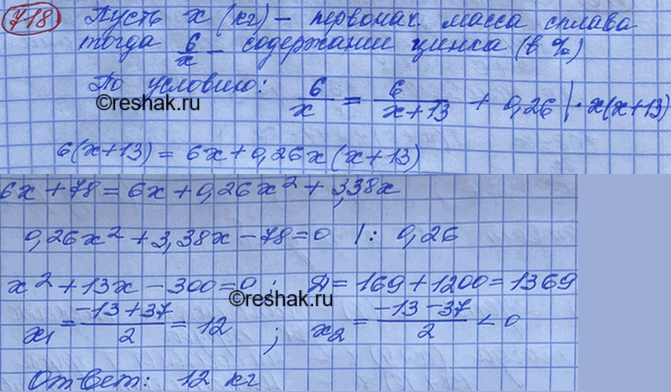 718 Пусть x (кг) – первонач масса сплава
тогда 6/x – содержании цинка (в %)
По условию: 6/x = 6/(x+13) + 0,26 |· x(x+13)
©reshak.ru
©reshak.ru
6(x+13) = 6x + 0,26x(x+13)
6x + 78 = 6x + 0,26x² + 3,38x
0,26x² + 3,38x – 78 = 0 |: 0,26
x² + 13x – 300 = 0 ; Д = 169 + 1200 = 1369
x₁ = (–13 + 37)/2 = 12 ; x₂ = (–13 – 37)/2 < 0
©reshak.ru
Ответ: 12 кг